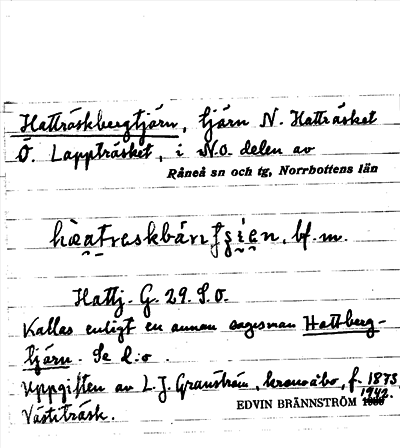 Hatträskbergtjärn, tjärn N. Hatträsket
Ö. Lappträsket, i N.O. delen av
Råneå sn och tg, Norrbottens län
Hattj. G. 29. S.O.
Kallas enligt en annan sagesman Hattberg-
tjärn. Se d:o.
Uppgiften av L. J. Granström, kronoåbo, f. 1873
Västiträsk.
EDVIN BRÄNNSTRÖM 1942.